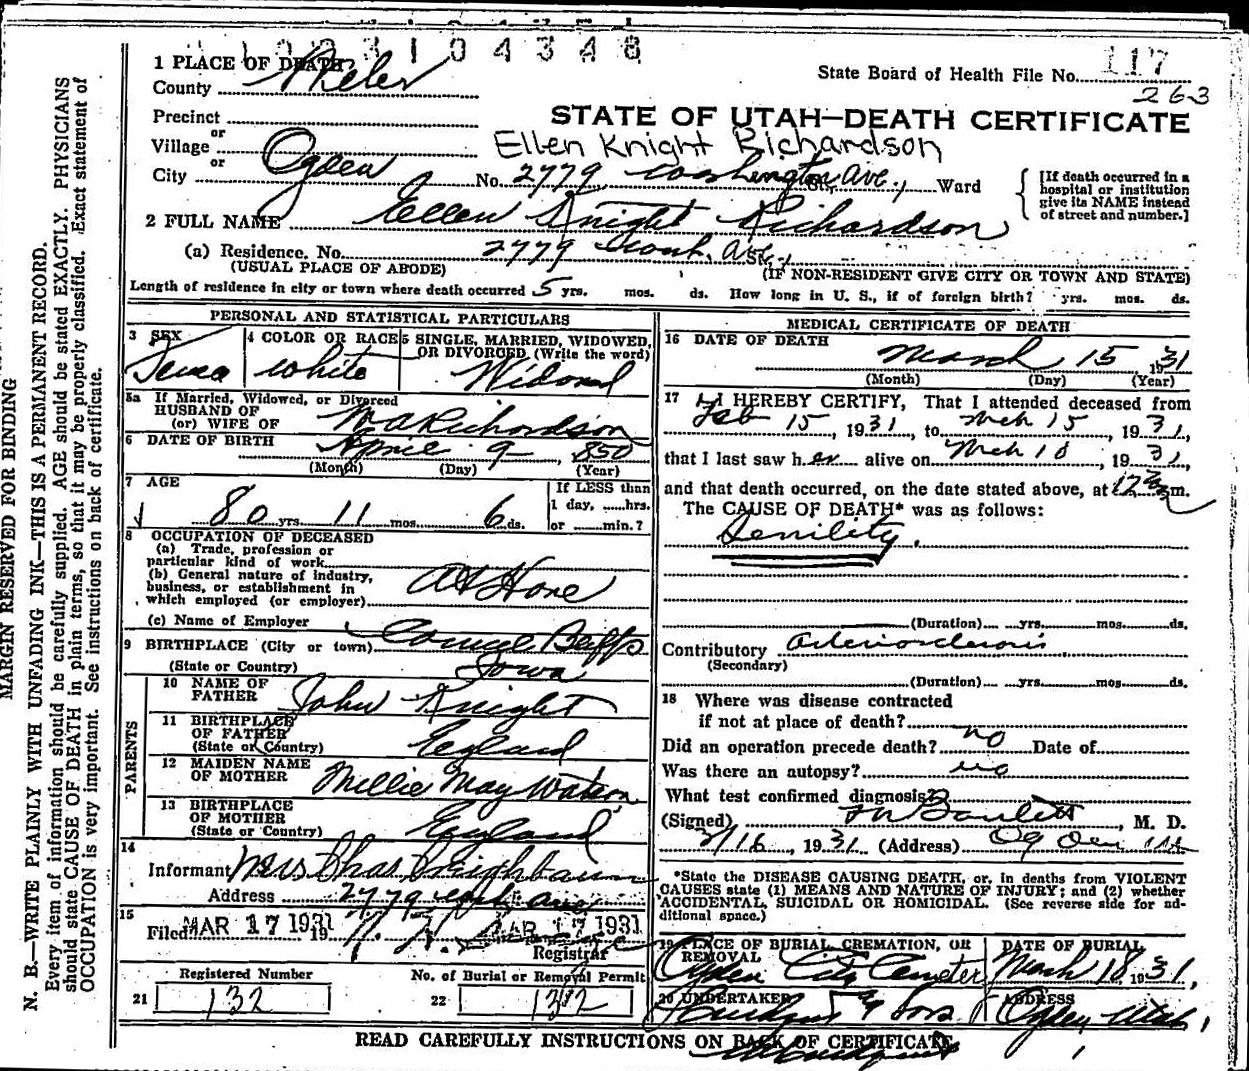 1 0 0 3 1 0 4 3 4 8
1 PLACE OF DEATH
County Weber
State Board of Health File No. 117
263
STATE OF UTAH—DEATH CERTIFICATE
Precinct
or
Village
Ellen Knight Richardson
or
City Ogden No. 2779 Washington Ave., Ward
[If death occurred in a hospital or institution give its NAME instead of street and number.]
2 FULL NAME Ellen Knight Richardson
(a) Residence. No. 2779 Wash. Ave.,
(USUAL PLACE OF ABODE) (IF NON-RESIDENT GIVE CITY OR TOWN AND STATE)
Length of residence in city or town where death occurred 5 yrs. mos. ds. How long in U. S., if of foreign birth? yrs. mos. ds.
PERSONAL AND STATISTICAL PARTICULARS
3 SEX
4 COLOR OR RACE white
5 SINGLE, MARRIED, WIDOWED, OR DIVORCED (Write the word)
5a If Married, Widowed, or Divorced
HUSBAND OF
(or) WIFE OF Richardson
6 DATE OF BIRTH April 9, 1850
(Month) (Day) (Year)
7 AGE
80 yrs. 11 mos. 6 ds.
If LESS than 1 day, hrs. or min.?
8 OCCUPATION OF DECEASED
(a) Trade, profession or particular kind of work
(b) General nature of industry, business, or establishment in which employed (or employer) At Home
(c) Name of Employer
9 BIRTHPLACE (City or town) Council Bluffs
(State or Country) Iowa
PARENTS
10 NAME OF FATHER John Knight
11 BIRTHPLACE OF FATHER (State or Country) England
12 MAIDEN NAME OF MOTHER Millie May Watson
13 BIRTHPLACE OF MOTHER (State or Country) England
14
Informant Mrs Chas
Address 2779 Wash Ave
15
Filed MAR 17 1931 19 MAR 17 1931
Registrar
Registered Number
21 132
No. of Burial or Removal Permit
22 132
MEDICAL CERTIFICATE OF DEATH
16 DATE OF DEATH
March 15 1931
(Month) (Day) (Year)
17 I HEREBY CERTIFY, That I attended deceased from
Feb 15, 1931, to Mch 15, 1931,
that I last saw her alive on Mch 10, 1931,
and that death occurred, on the date stated above, at 12 m.
The CAUSE OF DEATH* was as follows:
Senility.
(Duration) yrs. mos. ds.
Contributory Arteriosclerosis.
(Secondary)
(Duration) yrs. mos. ds.
18 Where was disease contracted
if not at place of death?
Did an operation precede death? no Date of
Was there an autopsy? no
What test confirmed diagnosis?
(Signed) , M. D.
3/16, 1931 (Address) Ogden Ut
*State the DISEASE CAUSING DEATH, or, in deaths from VIOLENT CAUSES state (1) MEANS AND NATURE OF INJURY; and (2) whether ACCIDENTAL, SUICIDAL OR HOMICIDAL. (See reverse side for additional space.)
19 PLACE OF BURIAL, CREMATION, OR REMOVAL
Ogden City Cemetery
DATE OF BURIAL
March 18 1931,
20 UNDERTAKER & Sons
ADDRESS
Ogden Utah,
READ CAREFULLY INSTRUCTIONS ON BACK OF CERTIFICATE
MARGIN RESERVED FOR BINDING
N. B.—WRITE PLAINLY WITH UNFADING INK—THIS IS A PERMANENT RECORD.
Every item of information should be carefully supplied. AGE should be stated EXACTLY. PHYSICIANS
should state CAUSE OF DEATH in plain terms, so that it may be properly classified. Exact statement of
OCCUPATION is very important. See instructions on back of certificate.